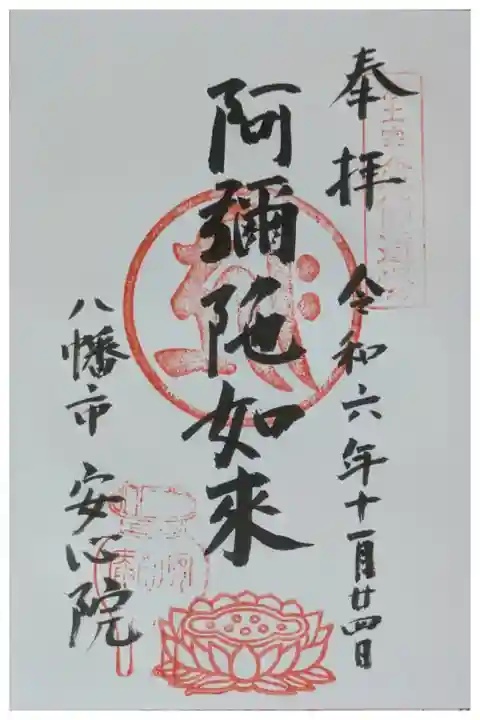 奉拝 令和六年十一月廿四日
阿彌陀如来
八幡市 安心院